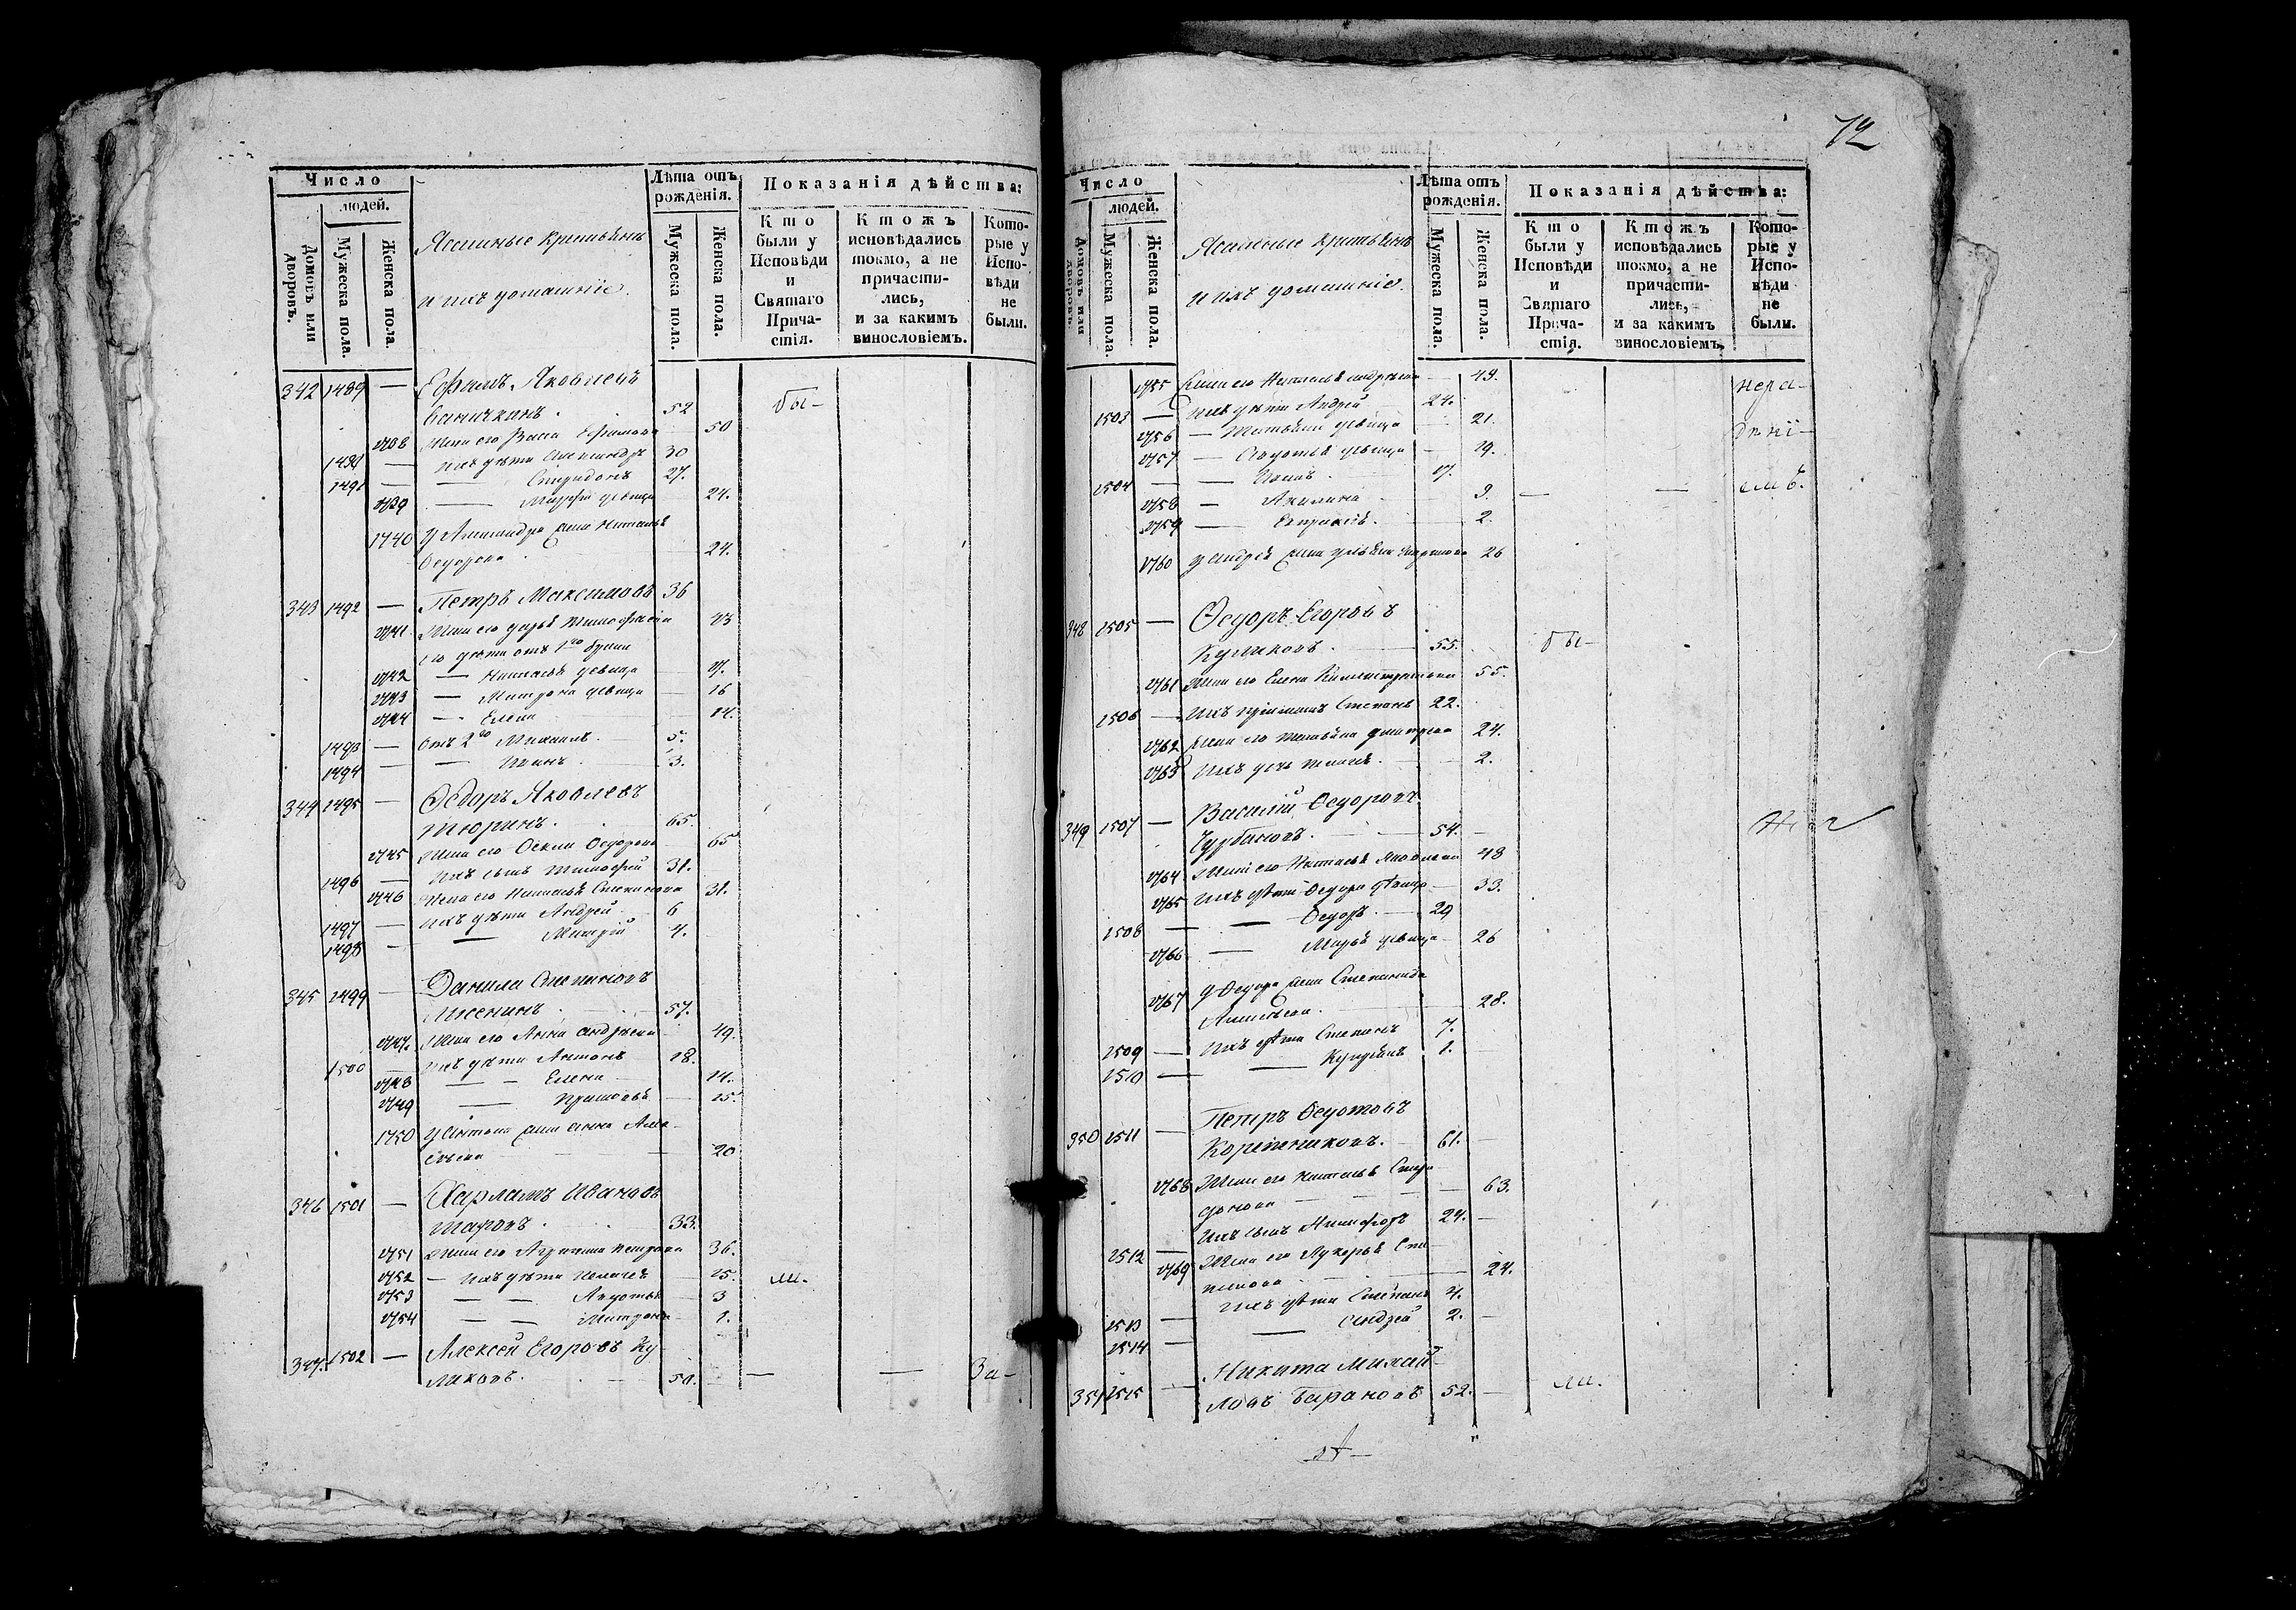 Число
людей.
Домовъ или дворовъ.
Мужеска пола.
Женска пола.
крестьяне
и ихъ домашніе.
Лѣта отъ рожденія.
Мужеска пола.
Женска пола.
Показанія дѣйства:
Кто были у Исповѣди и Святаго Прича-стія.
Ктожъ исповѣдались токмо, а не причасти-лись, и за какимъ винословіемъ.
Кото-рые у Испо-вѣди не были.
342 1489 — Ефимъ Яковлевъ
52 бы-
1738 Жена его Васса Ефимова 50
— ихъ дѣти Александръ 30
1491 — — Спиридонъ 27.
1739 — Марфа дѣвица 24.
1740 у Александра жена Наталья
Федорова 24.
343 1492 — Петръ Максимовъ 36
1741 Жена его Дарья Тимофеева 43
его дѣти отъ 1го брака
1742 — Наталья дѣвица 17.
1743 — Матрона дѣвица 16
1744 — Елена 14.
1493 — Отъ 2го Михаилъ 5.
1494 — — Иванъ 3.
344 1495 — Ѳедоръ Яковлевъ
Тюринъ. 65.
1745 Жена его Ѳекла Ѳедорова 65
1496 — Ихъ сынъ Тимофей 31.
1746 Жена его Наталья Степанова 31.
1497 — ихъ дѣти Андрей 6
1498 — — Митрій 4.
345 1499 — Данила Степановъ
57.
1747. Жена его Анна Андреева 49.
1500 — ихъ дѣти Антонъ 18.
1748 — — Елена 14.
1749 — 15.
1750 у Антона жена Анна Але-
ксѣева 20
346 1501 — Харламъ Ивановъ
Шаровъ. 33.
1751 Жена его Петрова 36.
1752 — ихъ дѣти Пелагея 15. ли.
1753 — — Авдотья 3
1754 — — Матрона 1.
347. 1502 — Алексей Егоровъ Ку-
ликовъ. 50. — — За-
72
Число
людей.
Домовъ или дворовъ.
Мужеска пола.
Женска пола.
крестьяне
и ихъ домашніе.
Лѣта отъ рожденія.
Мужеска пола.
Женска пола.
Показанія дѣйства:
Кто были у Исповѣди и Святаго Прича-стія.
Ктожъ исповѣдались токмо, а не причасти-лись, и за какимъ винословіемъ.
Кото-рые у Испо-вѣди не были.
1755 Жена его Наталья Андреева 49. нера-
1503 — ихъ дѣти Андрей 24.
1756 — Татьяна дѣвица 21. дѣні-
1757 — Авдотья дѣвица 19.
1504 — — Иванъ 17.
1758 — Акилина 9. — — емъ.
1759 — 2.
1760 у Андрея жена 26
348 1505 — Ѳедоръ Егоровъ
Куликовъ. 55. бы-
1761 Жена его Елена 55.
1506 — Ихъ Степанъ 22.
1762 Жена его Татьяна 24.
1763 Ихъ дочь Пелагея. 2.
349 1507 — Василій Ѳедоровъ
Чурбановъ. 54. —
1764 Жена его Наталья Яковлева 48
1765 Ихъ дѣти Ѳедора дѣвица 33.
1508 — — Ѳедоръ. 29
1766 — Марья дѣвица 26
1767 у Ѳедора жена Степанида
28.
1509 — Ихъ дѣти Степанъ 7.
1510 — — 1.
350 1511 — Петръ Ѳедотовъ
61. —
1768 Жена его Наталья Спири-
донова 63.
1512 — Ихъ сынъ Никифоръ 24. —
1769 Жена его Лукерья Сте-
панова 24.
1513 — ихъ дѣти Степанъ 4.
1514 — — Андрей 2. —
351 1515 — Никита Михай-
ловъ Барановъ 52. — ли.